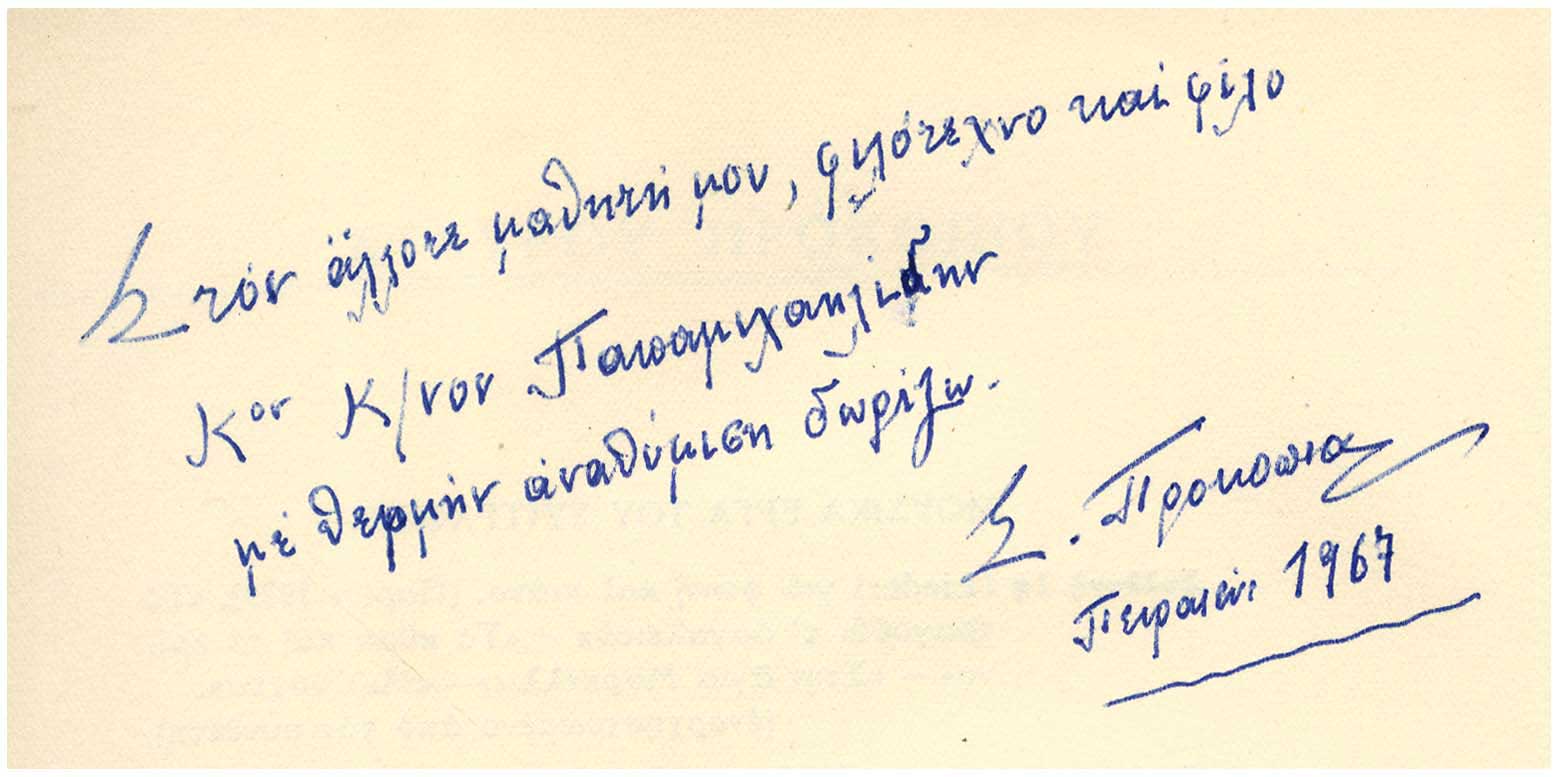 Στόν ἄλλοτε μαθητή μου, φιλότεχνο καί φίλο
Κον Κ/νον Παπαμιχαηλίδην
μέ θερμήν ἀναθύμιση δωρίζω.
Σ. Προκοπίου
Πειραιεύς 1967